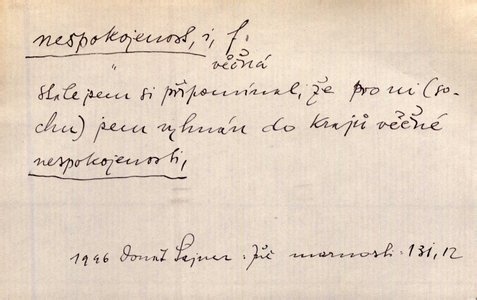 nespokojenost, i, f.
" věčná
stále jsem si připomínal, že pro ni (so-
chu) jsem vyhnán do krajů věčné
nespokojenosti,
1946 Donát Šajner: Žíč marnosti. 131, 12